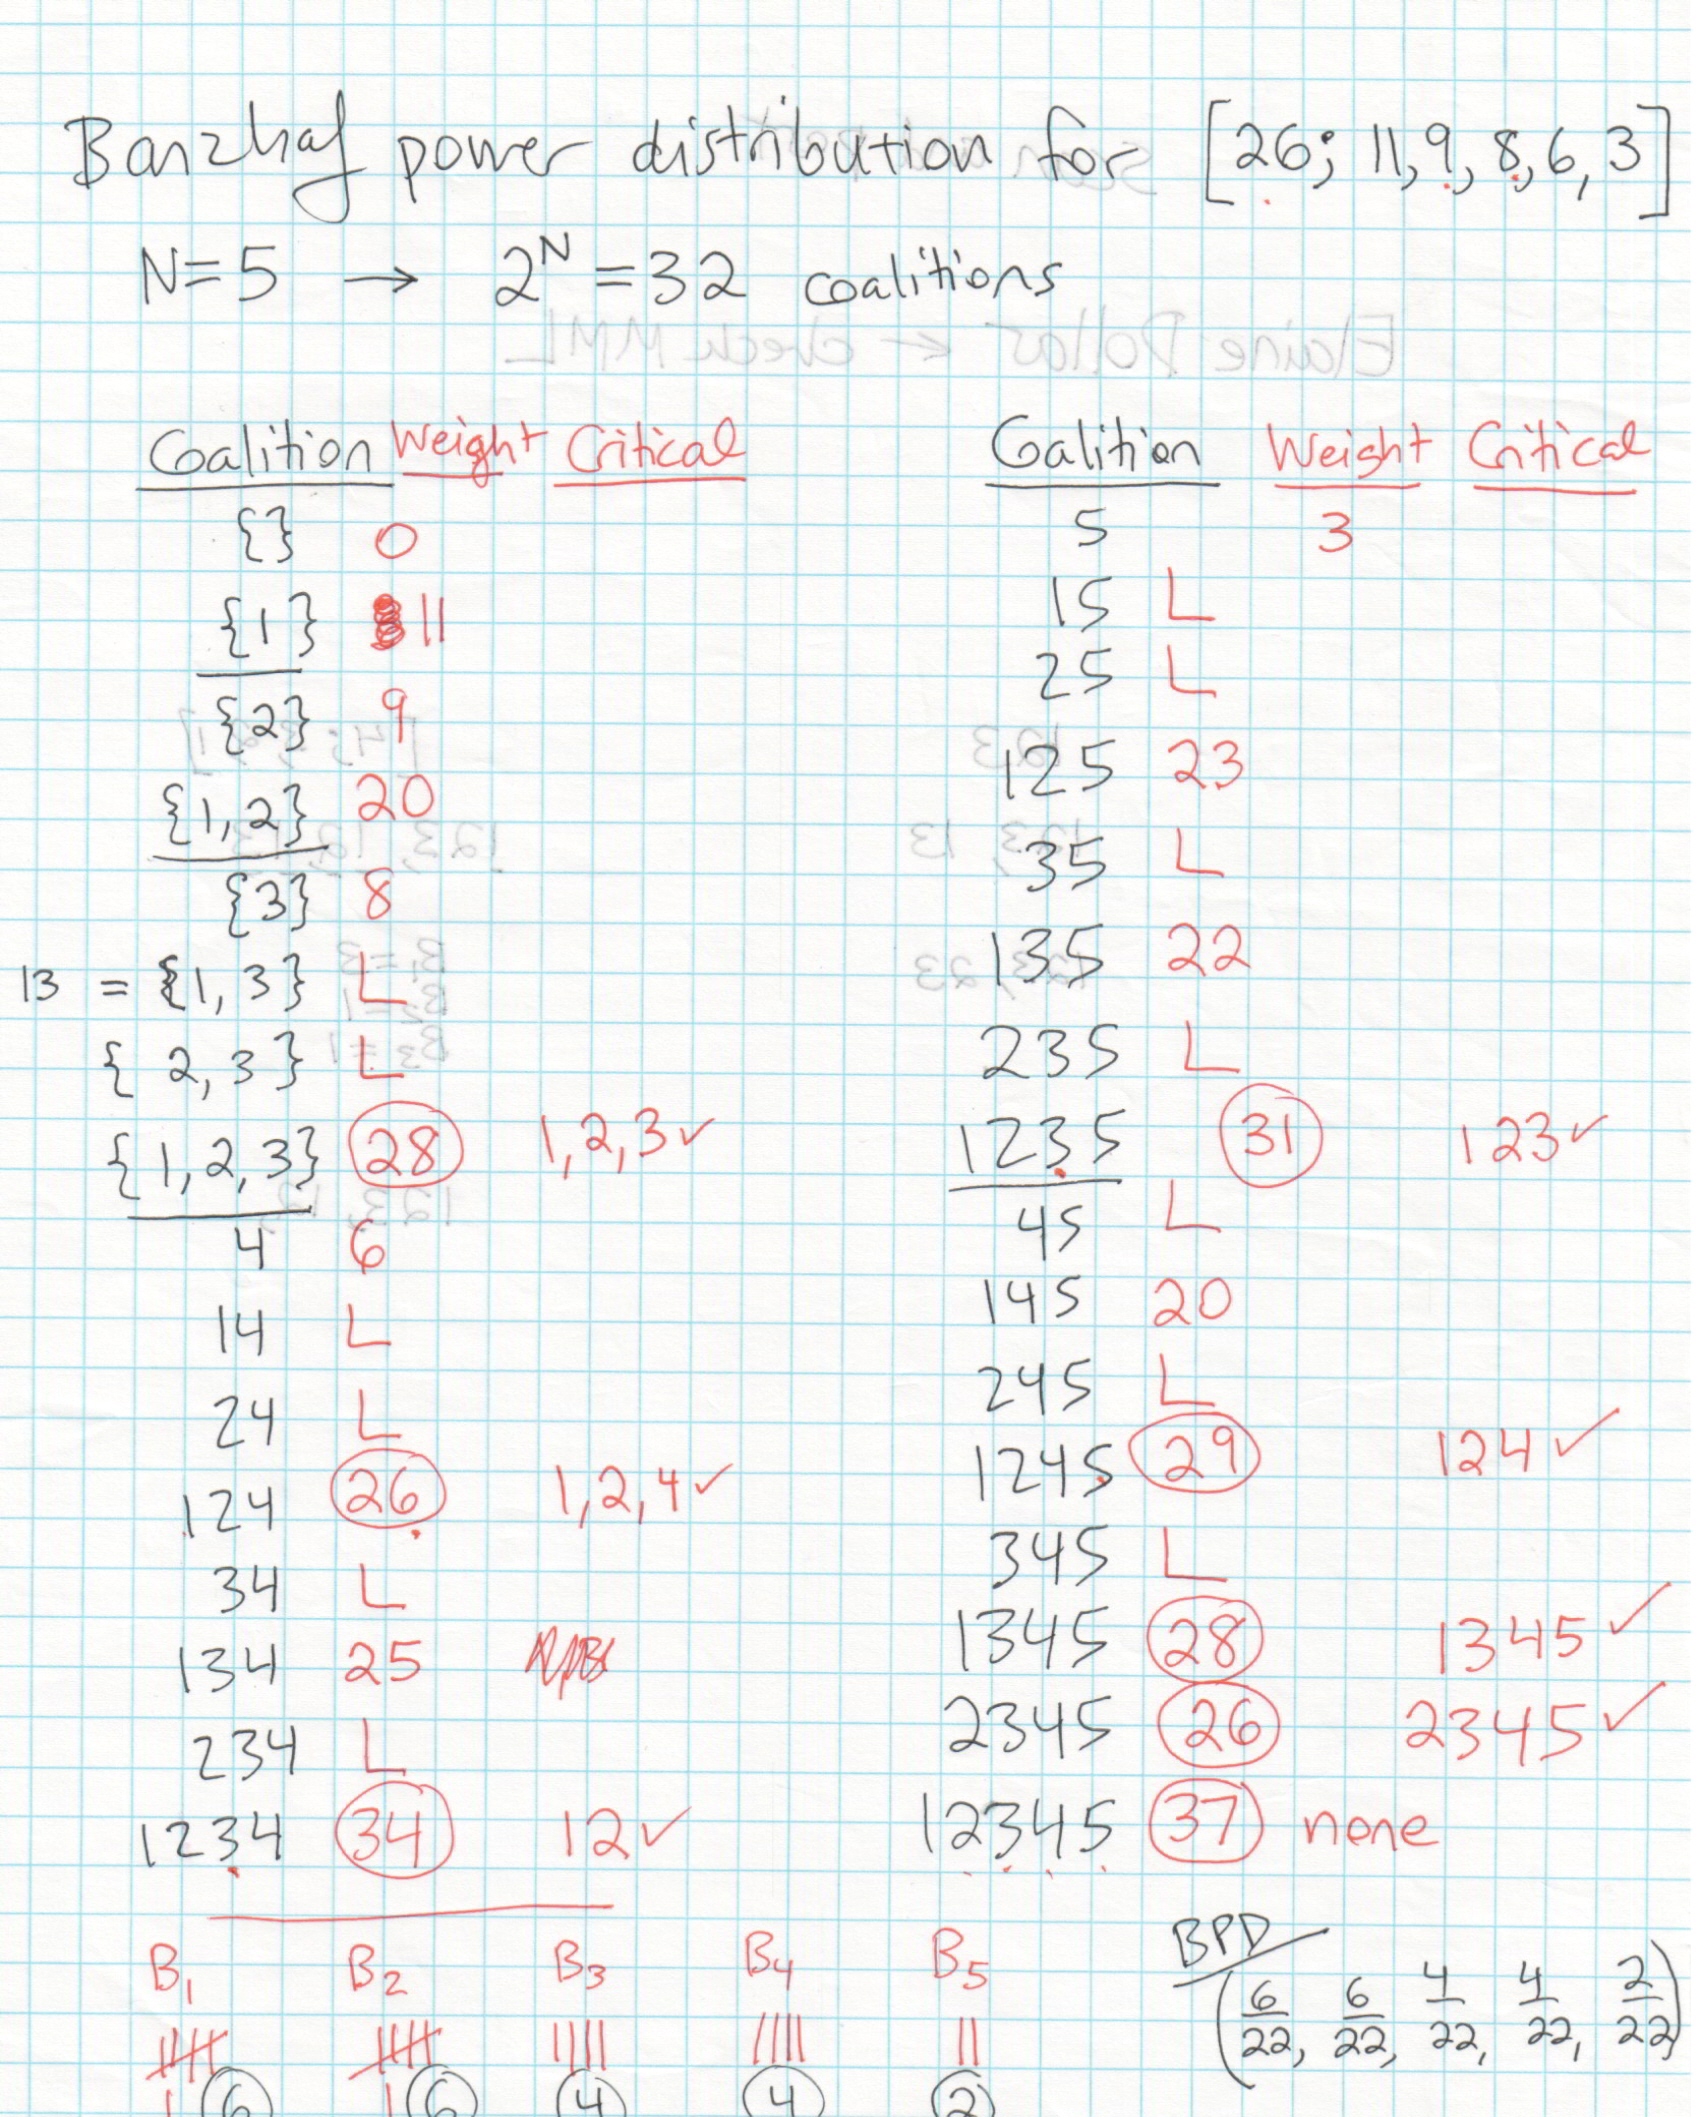 Banzhaf power distribution for [26; 11, 9, 8, 6, 3]
N=5 → 2^N = 32 coalitions
Elaine Dollar → check MML
Coalition Weight Critical
{} 0
{1} 11
{2} 9
{1,2} 20
{3} 8
13 = {1, 3} L
{ 2, 3 } L
{ 1, 2, 3} 28 1, 2, 3 ✓
4 6
14 L
24 L
124 26 1, 2, 4 ✓
34 L
134 25
234 L
1234 34 12 ✓
Coalition Weight Critical
5 3
15 L
25 L
125 23
35 L
135 22
235 L
1235 31 123 ✓
45 L
145 20
245 L
1245 29 124 ✓
345 L
1345 28 1345 ✓
2345 26 2345 ✓
12345 37 none
B1 B2 B3 B4 B5
6 6 4 4 2
BPD
(6/22, 6/22, 4/22, 4/22, 2/22)